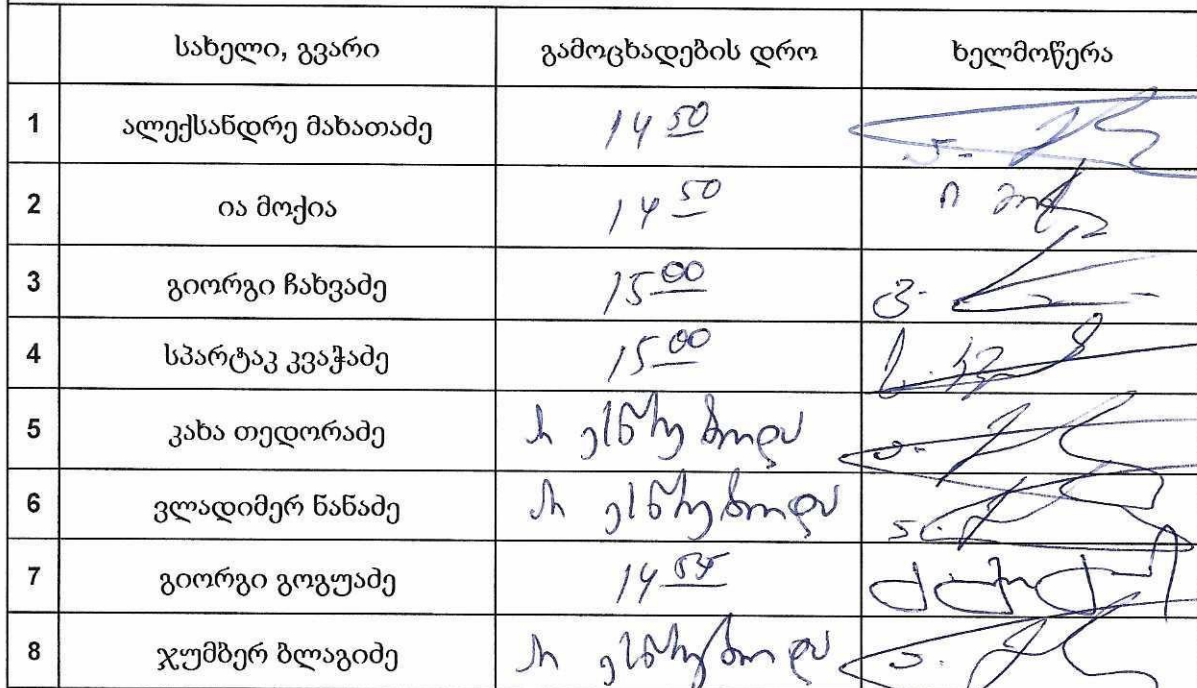 სახელი, გვარი გამოცხადების დრო ხელმოწერა
1 ალექსანდრე მახათაძე 14 50
2 ია მოქია 14 50
3 გიორგი ჩახვაძე 15 00
4 სპარტაკ კვაჭაძე 15 00
5 კახა თედორაძე არ ესწრებოდა
6 ვლადიმერ ნანაძე არ ესწრებოდა
7 გიორგი გოგუაძე 14 55
8 ჯუმბერ ბლაგიძე არ ესწრებოდა